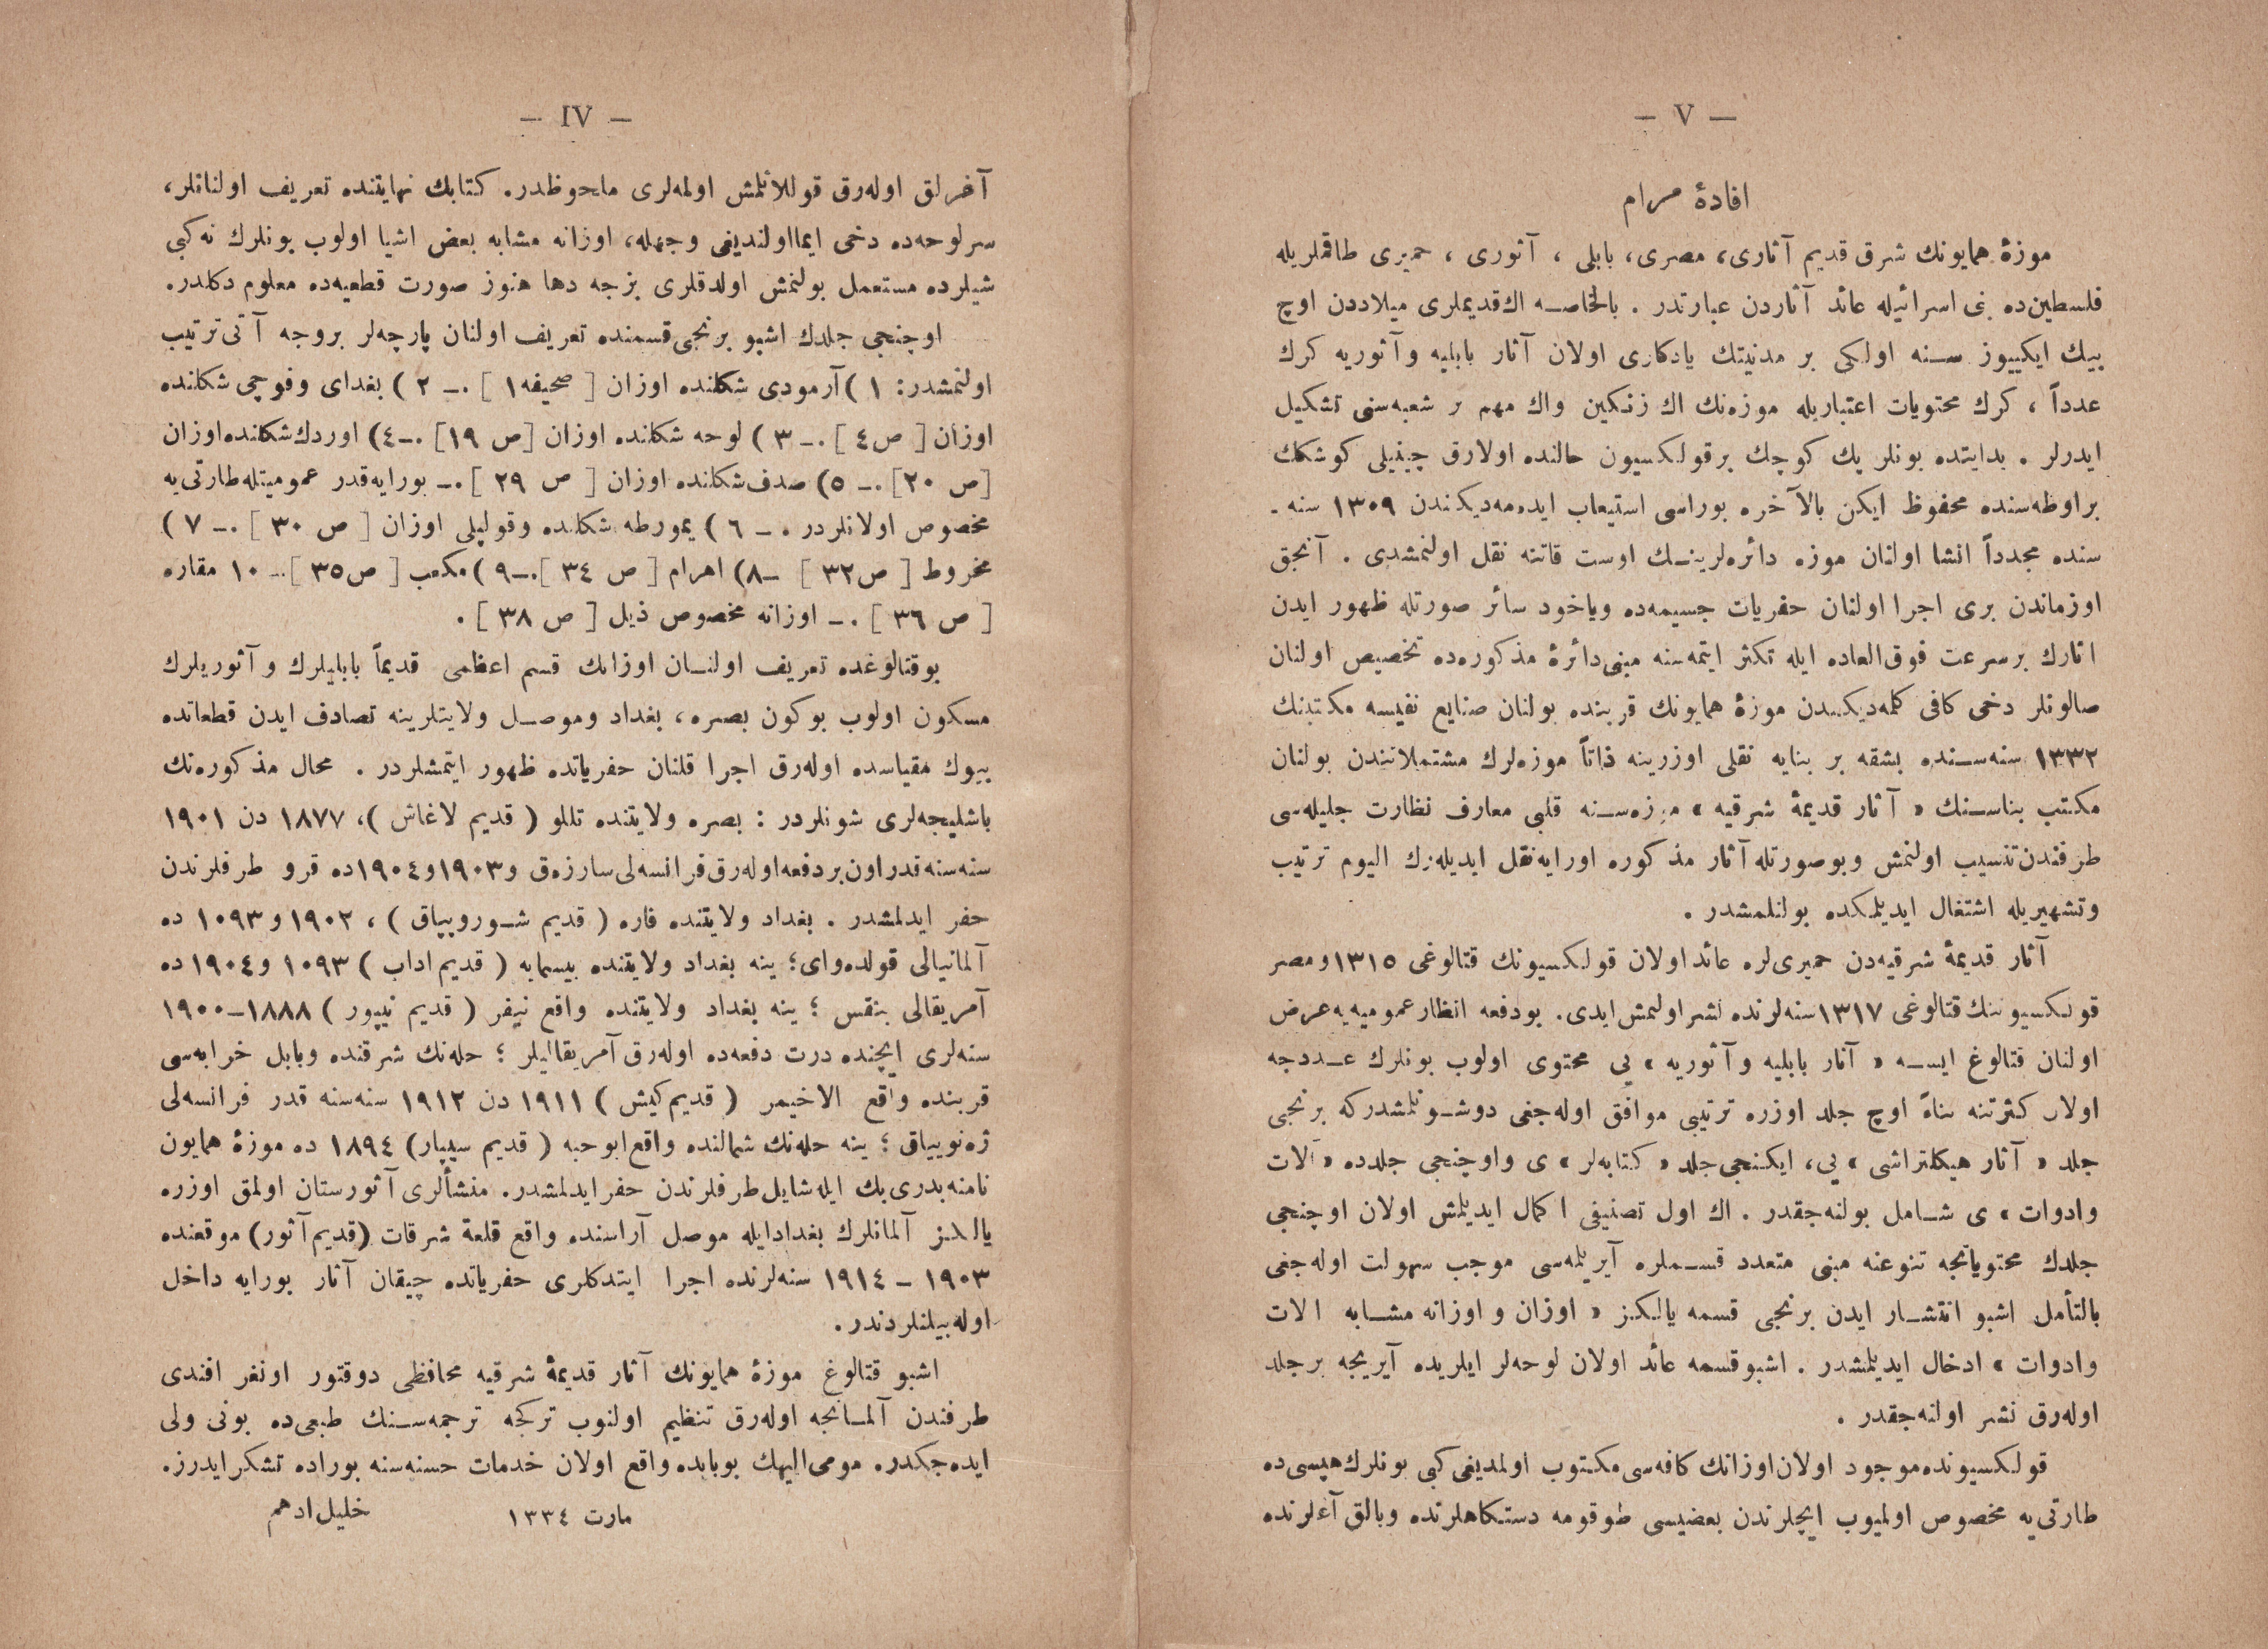 — V —
افادهٔ مرام
موزهٔ همایونك شرق قدیم آثاری، مصری، بابلی ، آثوری ، حمیری طاقملریله
فلسطین‌ده بنی اسرائیله عائد آثاردن عبارتدر . بالخاصه اك‌قدیملری میلاددن اوچ
بیك ایکییوز سنه اولکی بر مدنیتك یادکاری اولان آثار بابلیه وآثوریه کرك
عدداً ، کرك محتویات اعتباریله موزه‌نك اك زنکین واك مهم بر شعبه‌سنی تشکیل
ایدرلر . بدایتده بونلر پك کوچك برقولکسیون حالنده اولارق چینیلی کوشکك
براوطه‌سنده محفوظ ایکن بالآخره بوراسی استیعاب ایده‌مه‌دیکندن ١٣٠٩ سنه ـ
سنده مجدداً انشا اولنان موزه دائره‌لرینك اوست قاتنه نقل اولنمشدی . آنجق
اوزماندن بری اجرا اولنان حفریات جسیمه‌ده ویاخود سائر صورتله ظهور ایدن
اثارك برسرعت فوق‌العاده ایله تکثر ایتمه‌سنه مبنی‌دائرهٔ مذکوره‌ده تخصیص اولنان
صالونلر دخی کافی کلمه‌دیکندن موزهٔ همایونك قربنده بولنان صنایع نفیسه مکتبنك
١٣٣٢ سنه‌سنده بشقه بر بنایه نقلی اوزرینه ذاتاً موزه‌لرك مشتملاتندن بولنان
مکتب بناسنك « آثار قدیمهٔ شرقیه » موزه‌سنه قلبی معارف نظارت جلیله‌سی
طرفندن‌تنسیب اولنمش وبوصورتله آثار مذکوره اورایه‌نقل ایدیله‌رك الیوم ترتیب
وتشهیریله اشتغال ایدیلمکده بولنلمشدر .
آثار قدیمهٔ شرقیه‌دن حمیری‌لره عائد اولان قولکسیونك قتالوغی ١٣١٥ومصر
قولکسیوننك‌قتالوغی ١٣١٧سنه‌لرنده نشر اولنمش‌ایدی. بودفعه انظارعمومیه‌یه‌عرض
اولنان قتالوغ ایسه « آثار بابلیه وآثوریه » یی محتوی اولوب بونلرك عددجه
اولان کثرتنه بناءً اوچ جلد اوزره ترتیبی موافق اوله‌جغی دوشونلمشدرکه برنجی
جلد « آثار هیکلتراشی » یی، ایکنجی‌جلد « کتابه‌لر » ی واوچنجی جلدده « آلات
وادوات » ی شامل بولنه‌جقدر . اك اول تصنیفی اکمال ایدیلمش اولان اوچنجی
جلدك محتویاتجه تنوعنه مبنی متعدد قسملره آیریلمه‌سی موجب سهولت اوله‌جغی
بالتأمل اشبو انتشار ایدن برنجی قسمه یالکز « اوزان و اوزانه مشابه الات
وادوات » ادخال ایدیلمشدر . اشبوقسمه عائد اولان لوحه‌لر ایلریده آیریجه برجلد
اوله‌رق نشر اولنه‌جقدر .
قولکسیونده‌موجود اولان‌اوزانك‌کافه‌سی‌مکتوب اولمدیغی‌کبی بونلرك‌هپسی‌ده
طارتی‌یه مخصوص اولمیوب ایچلرندن بعضیسی طوقومه دستکاهلرنده وبالق آغلرنده
— IV —
آغرلق اوله‌رق قوللانلمش اولمه‌لری ملحوظدر. کتابك نهایتنده تعریف اولنانلر،
سرلوحه‌ده دخی ایمااولندیغی وجهله، اوزانه مشابه بعض اشیا اولوب بونلرك نه‌کبی
شیلرده مستعمل بولنمش اولدقلری بزجه دها هنوز صورت قطعیه‌ده معلوم دکلدر.
اوچنجی جلدك اشبو برنجی‌قسمنده تعریف اولنان پارچه‌لر بروجه آتی‌ترتیب
اولنمشدر: ١ )آرمودی شکلنده اوزان [ صحیفه١ ] .ـ ٢ ) بغدای وفوجی شکلنده
اوزان [ ص٤ ] .ـ ٣ ) لوحه شکلنده اوزان [ص ١٩] .ـ٤) اوردك‌شکلنده‌اوزان
[ص ٢٠] .ـ ٥) صدف‌شکلنده اوزان [ ص ٢٩ ] .ـ بورایه‌قدر عمومیتله‌طارتی‌یه
مخصوص اولانلردر . ـ ٦ ) یمورطه شکلنده وقولپلی اوزان [ ص ٣٠ ] .ـ ٧ )
مخروط [ ص٣٢ ] ـ٨) اهرام [ ص ٣٤ ].ـ٩ )مکعب [ ص٣٥ ].ـ ١٠ مقاره
[ ص ٣٦ ] .ـ اوزانه مخصوص ذیل [ ص ٣٨ ] .
بوقتالوغده تعریف اولنان اوزانك قسم اعظمی قدیماً بابلیلرك و آثوریلرك
مسکون اولوب بوکون بصره، بغداد وموصل ولایتلرینه تصادف ایدن قطعاتده
بیوك مقیاسده اوله‌رق اجرا قلنان حفریاتده ظهور ایتمشلردر . محال مذکوره‌نك
باشلیجه‌لری شونلردر : بصره ولایتنده تللو ( قدیم لاغاش )، ١٨٧٧ دن ١٩٠١
سنه‌سنه‌قدراون‌بردفعه‌اوله‌رق‌فرانسه‌لی‌سارزه‌ق و١٩٠٣و١٩٠٤ده قرو طرفلرندن
حفر ایدلمشدر . بغداد ولایتنده فاره ( قدیم شوروپپاق ) ، ١٩٠٢ و ١٠٩٣ ده
آلمانیالی قولده‌وای؛ ینه بغداد ولایتنده بیسمایه ( قدیم‌اداب ) ١٠٩٣ و١٩٠٤ ده
آمریقالی بنقس ؛ ینه بغداد ولایتنده واقع نیفر ( قدیم نیپور ) ١٨٨٨ـ١٩٠٠
سنه‌لری ایچنده درت دفعه‌ده اوله‌رق آمریقالیلر ؛ حله‌نك شرقنده وبابل خرابه‌سی
قربنده واقع الاخیمر ( قدیم‌کیش ) ١٩١١ دن ١٩١٢ سنه‌سنه قدر فرانسه‌لی
ژه‌نوییاق ؛ ینه حله‌نك شمالنده واقع‌ابوحبه ( قدیم سیپپار) ١٨٩٤ ده موزهٔ همایون
نامنه‌بدری‌بك ایله‌شایل‌طرفلرندن حفرایدلمشدر. منشألری آثورستان اولمق اوزره
یالکز آلمانلرك بغدادایله موصل آراسنده واقع قلعة شرقات (قدیم‌آثور) موقعنده
١٩٠٣ ـ ١٩١٤ سنه‌لرنده اجرا ایتدکلری حفریاتده چیقان آثار بورایه داخل
اوله‌بیلنلردندر.
اشبو قتالوغ موزهٔ همایونك آثار قدیمهٔ شرقیه محافظی دوقتور اونغر افندی
طرفندن آلمانجه اوله‌رق تنظیم اولنوب ترکجه ترجمه‌سنك طبعی‌ده بونی ولی
ایده‌جکدر. مومی‌الیهك بوبابده واقع اولان خدمات حسنه‌سنه بوراده تشکرایدرز.
مارت ١٣٣٤ خلیل‌ادهم